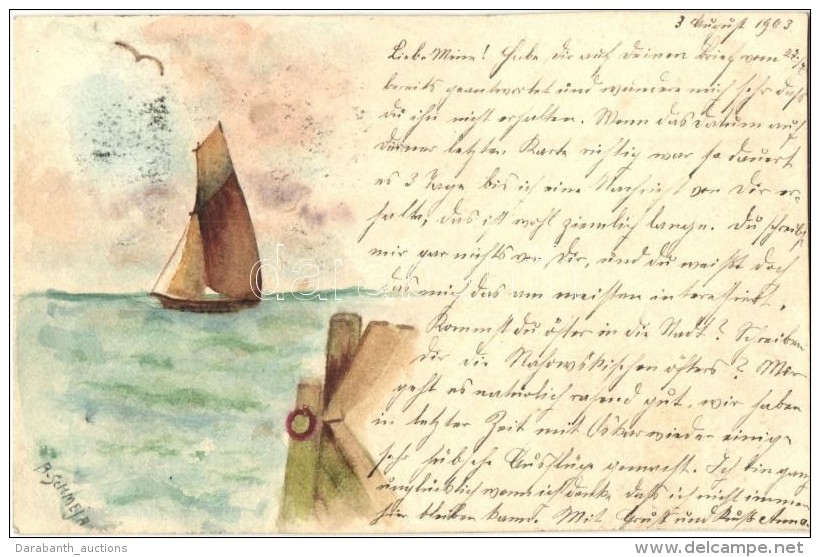 3 August 1903
Liebe Mine! Habe, dir auf deinen Brief vom
bereits geantwortet und wundere mich sehr daß
du ihn nicht erhalten. Wenn das Datum auf
deiner letzten Karte richtig war so dauert
es 3 Tage bis ich eine Nachricht von Dir er-
halte, das ist wohl ziemlich lange. Du schreibst
mir gar nichts von Dir, und du weißt doch
das mich das am meisten interessiert.
Kommst du öfter in die Stadt? Schreiben
dir die öfters? Mir
geht es natürlich rasend gut, wir haben
in letzter Zeit mit Oskar wieder einige
sehr hübsche Ausflüge gemacht. Ich bin ganz
unglücklich wenn ich denke daß ich nicht immer
hier bleiben kann. Mit Gruß und Kuß Anna.
darabanth
Darabanth_auctions
www.delcampe.net